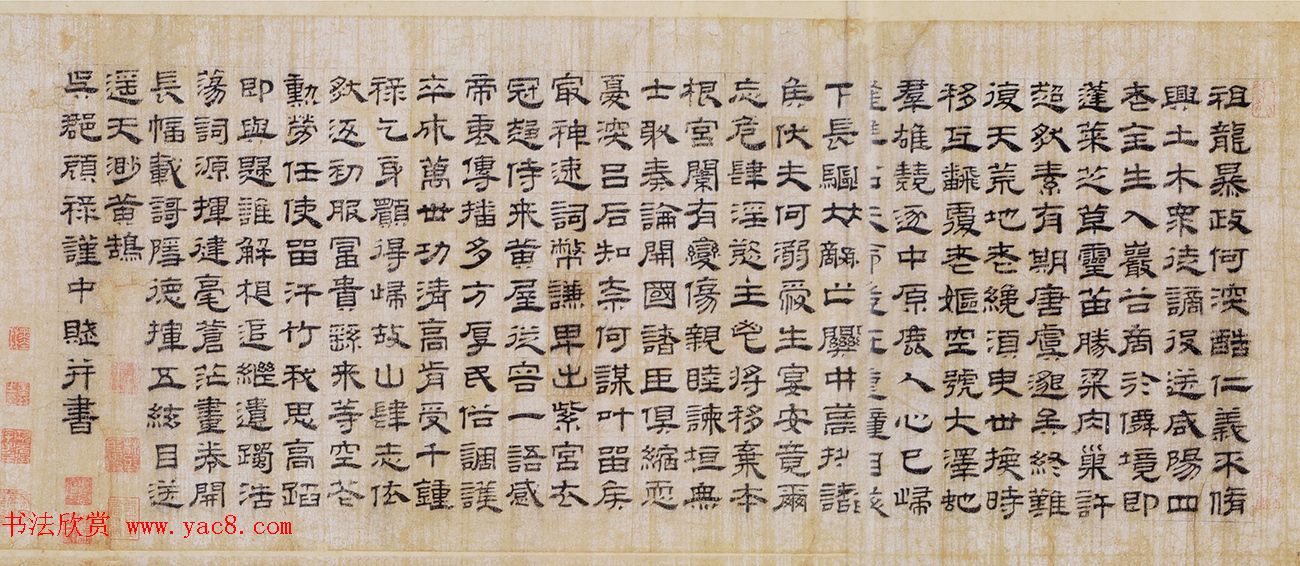 祖龍暴政何深酷仁義不脩
興土木眾徒謫役送咸陽四
老全生入巖谷商於僻境即
蓬萊芝草靈苗勝粱肉巢許
超然素有期唐虞邈矣終難
復天荒地老纔須臾世換時
移互翻覆老嫗空號大澤蛇
羣雄競逐中原鹿人心已歸
隆準公天命豈在重瞳目
下長驅敵亡關中
侯伏夫何溺愛生宴安竟爾
忘危肆淫慾主鬯將移棄本
根宮闈有變傷親睦諫垣無
士敢奏論開國諸臣俱縮恧
憂深呂后知柰何謀叶留矦
最神速詞幣謙卑出紫宮衣
冠趨侍来黃屋從容一語感
帝衷傳播多方厚民俗調護
卒成萬世功清高肯受千鍾
祿乞身願得歸故山肆志依
然返初服富貴繇来等空花
勳勞任使留汗竹我思高蹈
即與誰解相追繼遺躅浩
蕩詞源揮健毫蒼茫畫卷開
長幅載哥隱德揮五絃目送
遥天渺黃鵠
吳郡顧祿謹中賦并書
书法欣赏 www.yac8.com